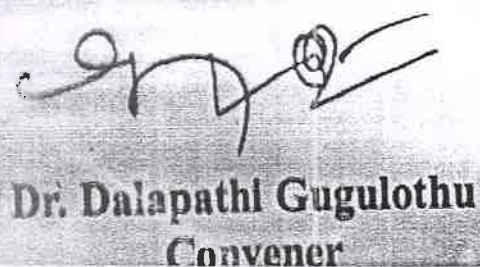 Dr. Dalapathi Gugulothu
Convener